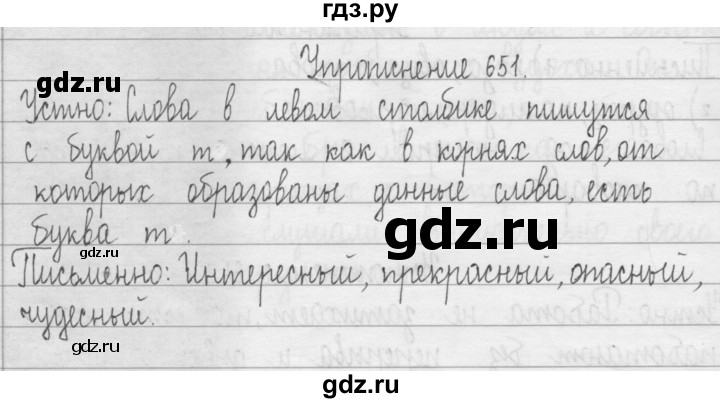 гдз.ру
Упражнение 651.
gdz.ru
Устно: Слова в левом столбике пишутся
с буквой т, так как в корнях слов, от
которых образованы данные слова, есть
буква т.
gdz.ru
Письменно: Интересный, прекрасный, опасный,
чудесный.
gdz.ru
gdz.ru
gdz.ru